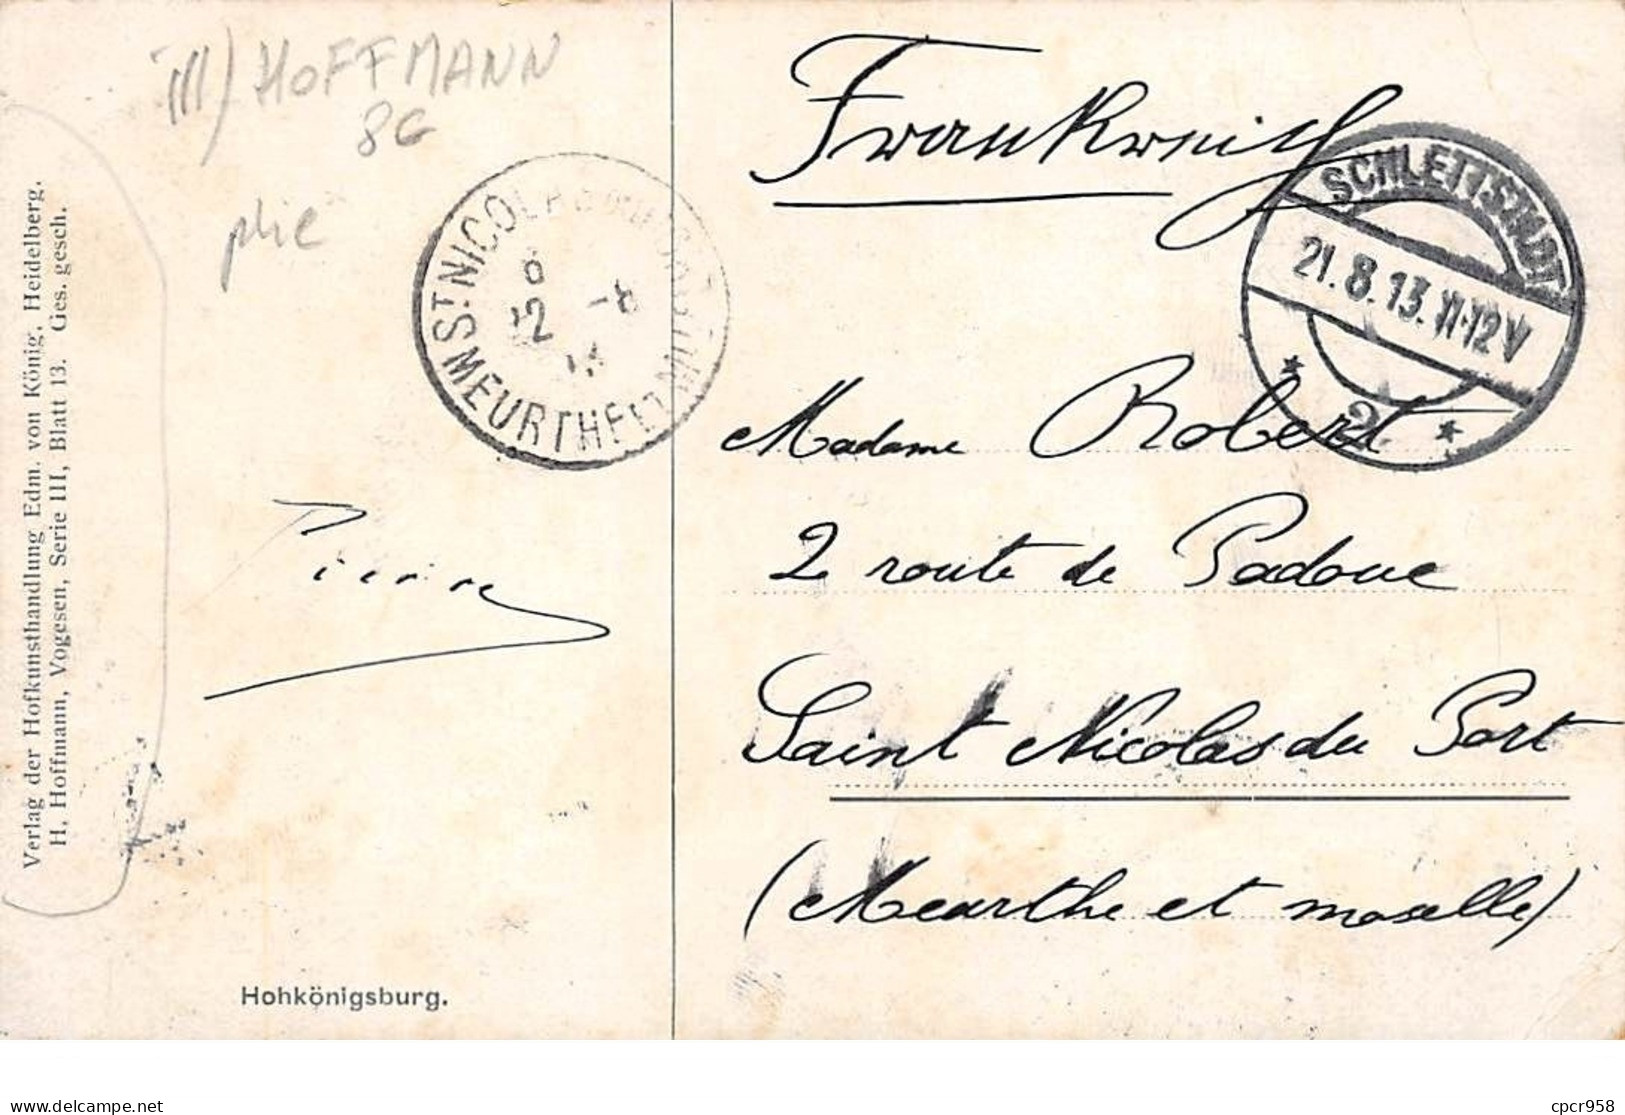 ill) HOFFMANN
86
plie
Verlag der Hofkunsthandlung Edm. von König, Heidelberg.
H. Hoffmann, Vogesen, Serie III, Blatt 13. Ges. gesch.
ST NICOLAS DU PORT
MEURTHE
Pierre
Hohkönigsburg.
Frankreich
SCHLETTSTADT
21.8.13.11-12V
* 2. *
Madame Robert
2 route de Padoue
Saint Nicolas du Port
(Meurthe et moselle)
cpcr958